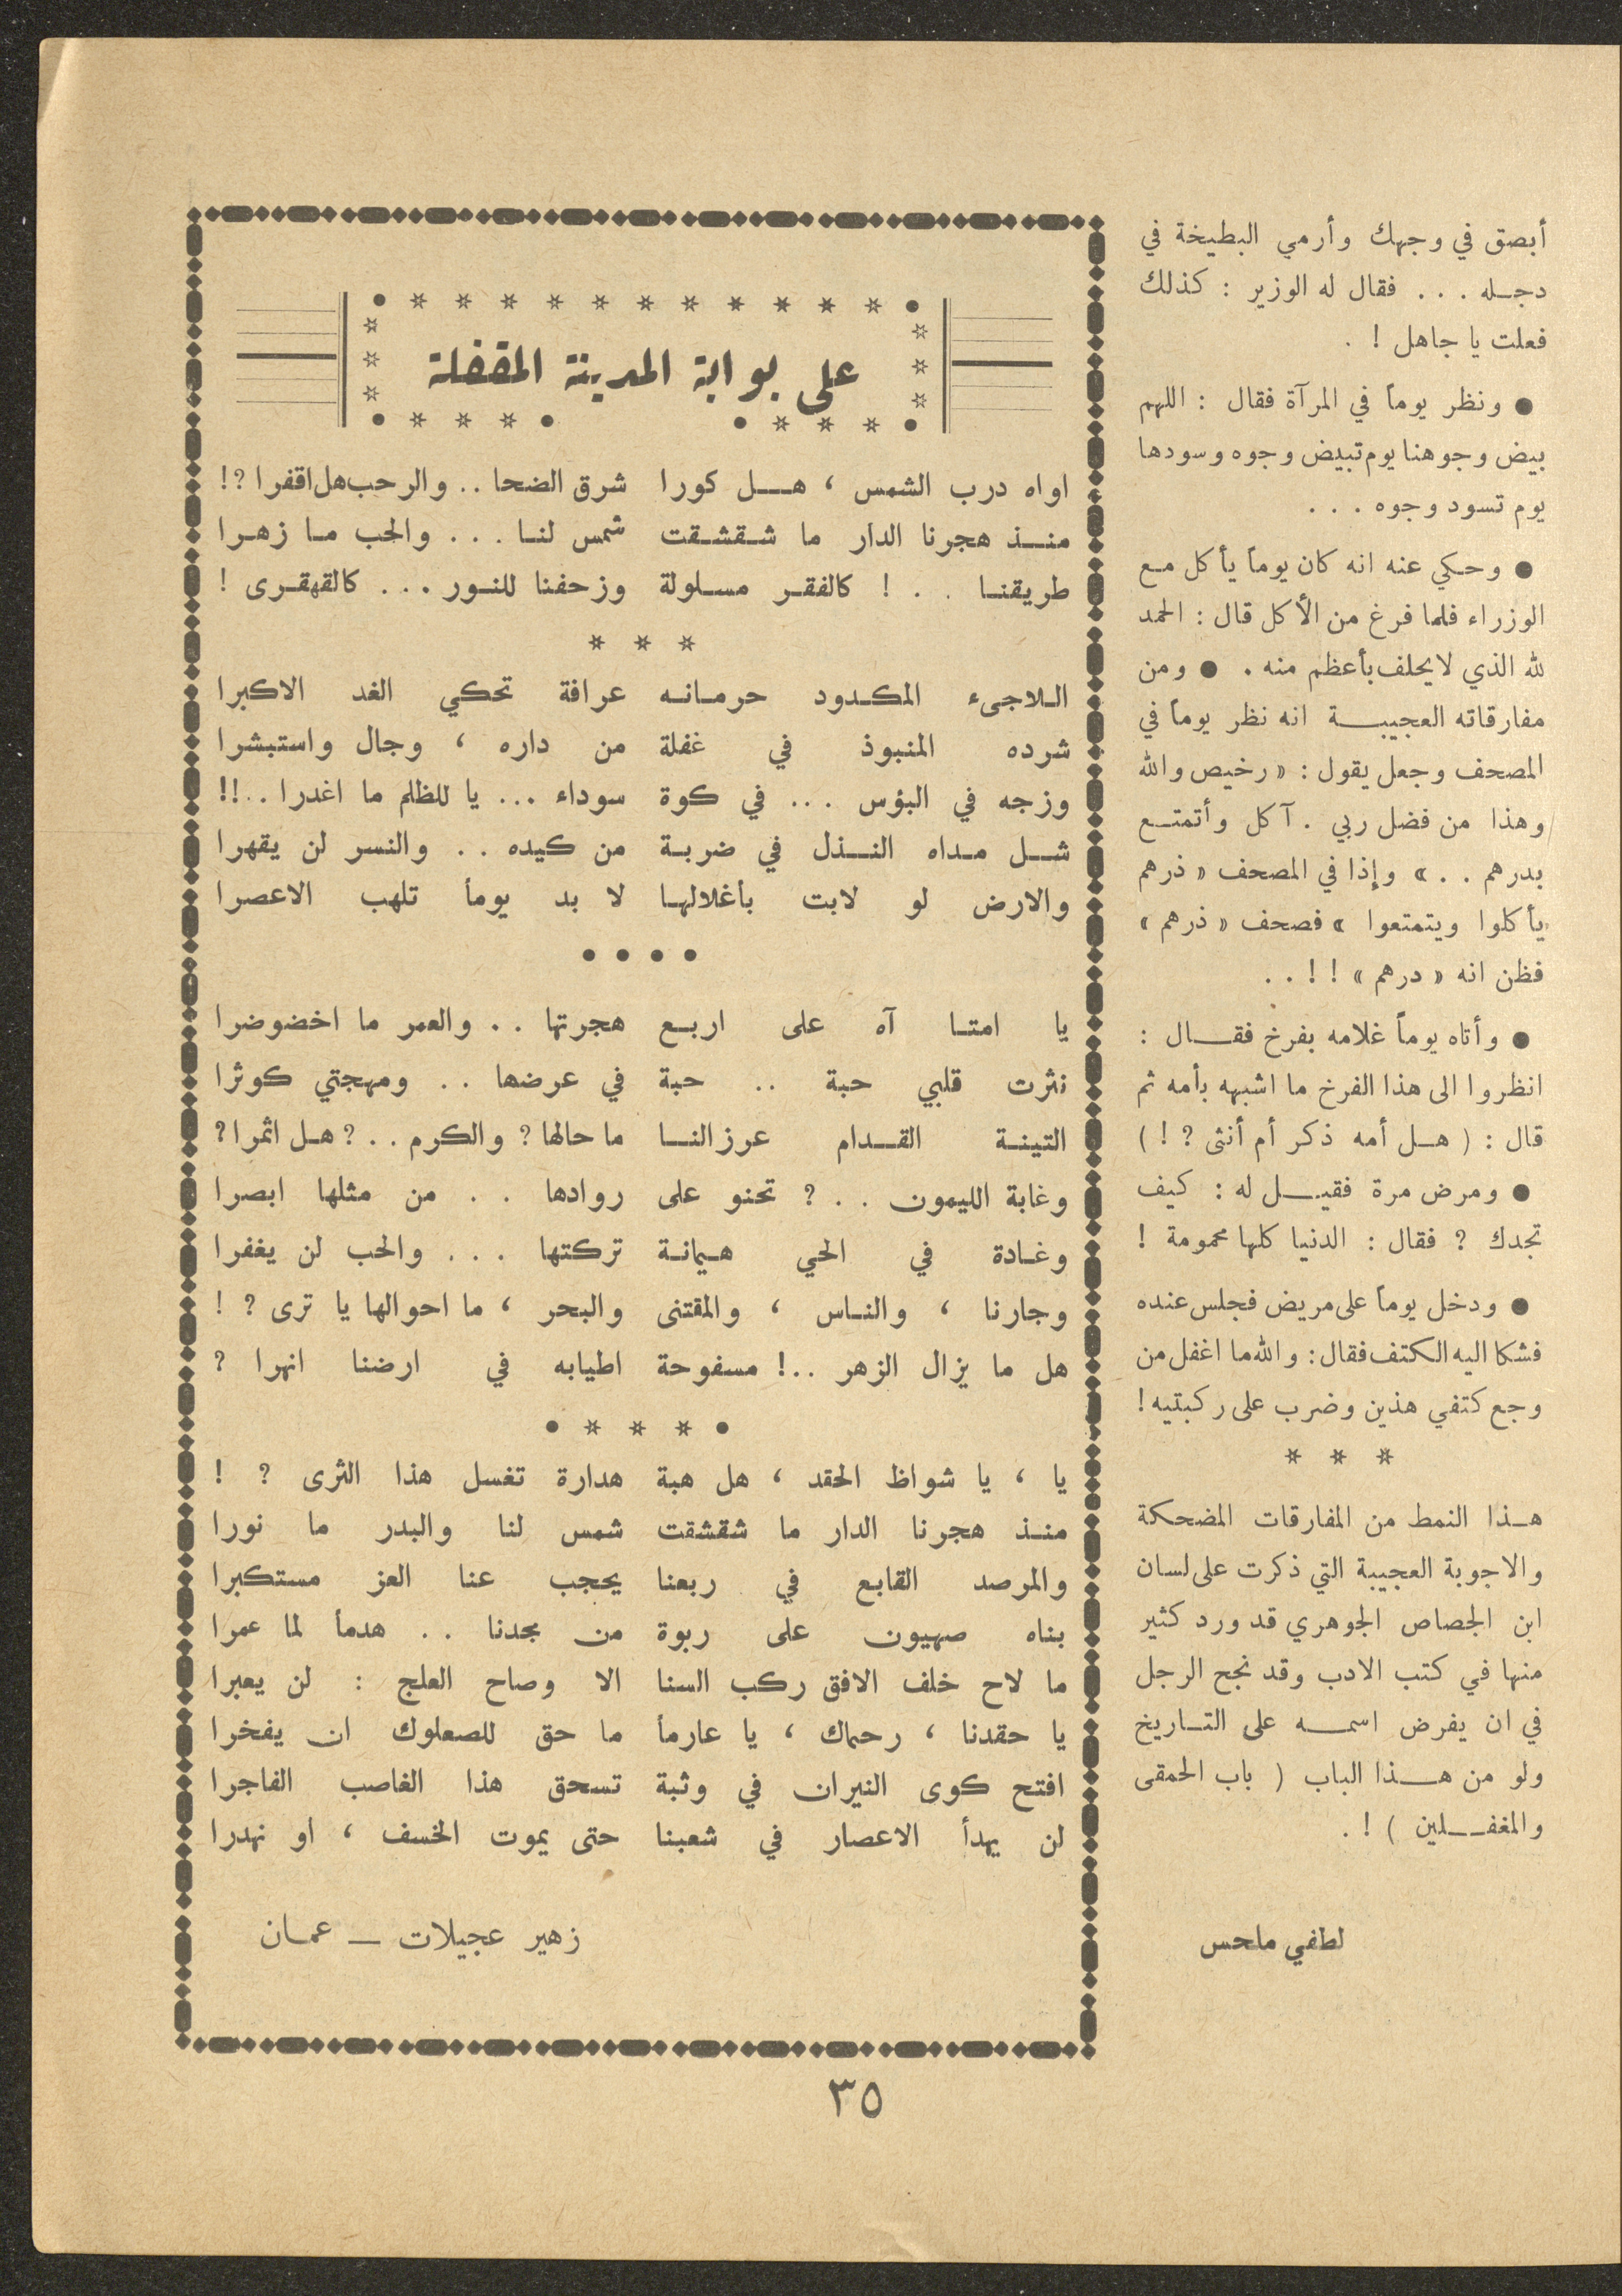 أبصق في وجهك وأرمي البطيخة في
دجله . . . فقال له الوزير : كذلك
فعلت يا جاهل ! .
● ونظر يوماً في المرآة فقال : اللهم
بيض وجوهنا يوم تبيض وجوه وسودها
يوم تسود وجوه . . .
● وحكي عنه انه كان يوماً يأكل مع
الوزراء فلما فرغ من الأكل قال : الحمد
لله الذي لا يحلف بأعظم منه . ● ومن
مفارقاته العجيبة انه نظر يوماً في
المصحف وجعل يقول : « رخيص والله
وهذا من فضل ربي . آكل وأتمتع
بدرهم . . » وإذا في المصحف « ذرهم
يأكلوا ويتمتعوا » فصحف « ذرهم »
فظن انه « درهم » ! ! . .
● وأتاه يوماً غلامه بفرخ فقال :
انظروا الى هذا الفرخ ما اشبهه بأمه ثم
قال : ( هل أمه ذكر أم أنثى ? ! )
● ومرض مرة فقيل له : كيف
تجدك ? فقال : الدنيا كلها محمومة !
● ودخل يوماً على مريض فجلس عنده
فشكا اليه الكتف فقال : والله ما اغفل من
وجع كتفي هذين وضرب على ركبتيه !
* * *
هذا النمط من المفارقات المضحكة
والاجوبة العجيبة التي ذكرت على لسان
ابن الجصاص الجوهري قد ورد كثير
منها في كتب الادب وقد نجح الرجل
في ان يفرض اسمه على التاريخ
ولو من هذا الباب ( باب الحمقى
والمغفلين ) ! .
لطفي ملحس
على بوابة المدينة المقفلة
اواه درب الشمس ، هل كورا شرق الضحا . . والرحب هل اقفرا ?!
منذ هجرنا الدار ما شقشقت شمس لنا . . . والحب ما زهرا
طريقنا . . ! كالفقر مسلولة وزحفنا للنور . . . كالقهقرى !
* * *
اللاجىء المكدود حرمانه عرافة تحكي الغد الاكبرا
شرده المنبوذ في غفلة من داره ، وجال واستبشرا
وزجه في البؤس . . . في كوة سوداء ... يا للظلم ما اغدرا . . !!
شل مداه النذل في ضربة من كيده . . والنسر لن يقهرا
والارض لو لابت بأغلالها لا بد يوماً تلهب الاعصرا
● ● ● ●
يا امتا آه على اربع هجرتها . . والعمر ما اخضوضرا
نثرت قلبي حبة .. حبة في عرضها . . ومهجتي كوثرا
التينة القدام عرزالنا ما حالها ? والكرم . . ? هل اثمرا ?
وغابة الليمون . . ? تحنو على روادها . . من مثلها ابصرا
وغادة في الحي هيمانة تركتها . . . والحب لن يغفرا
وجارنا ، والناس ، والمقتنى والبحر ، ما احوالها يا ترى ? !
هل ما يزال الزهر . . ! مسفوحة اطيابه في ارضنا انهرا ?
● * * * ●
يا ، يا شواظ الحقد ، هل هبة هدارة تغسل هذا الثرى ? !
منذ هجرنا الدار ما شقشقت شمس لنا والبدر ما نورا
والمرصد القابع في ربعنا يحجب عنا العز مستكبرا
بناه صهيون على ربوة من مجدنا . . هدماً لما عمرا
ما لاح خلف الافق ركب السنا الا وصاح العلج : لن يعبرا
يا حقدنا ، رحماك ، يا عارماً ما حق للصعلوك ان يفخرا
افتح كوى النيران في وثبة تسحق هذا الغاصب الفاجرا
لن يهدأ الاعصار في شعبنا حتى يموت الخسف ، او نهدرا
زهير عجيلات — عمان
٣٥